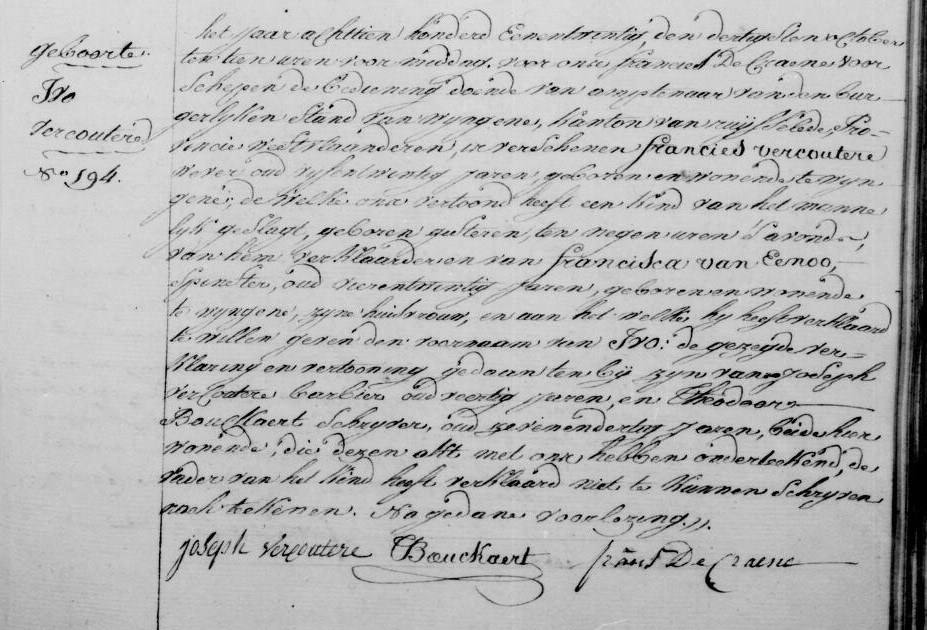 geboorte.
Ivo
Vercoutere
No 194.
het Jaar achttien honderd Eenentwintig, den dertigsten october
ten tien uren voor middag, voor ons francies De Craene voor
Schepen de bediening doende van amptenaar van den bur-
gerlyken Stand van wyngene, kanton van ruysselede, Pro-
vincie westvlaanderen, is verschenen francies vercoutere
wever oud vyfentwintig jaren, geboren en wonende te wyn-
gene, de welke ons vertoond heeft een kind van het manne
lyk geslagt, geboren gisteren, ten negen uren s'avonds,
van hem verklaarder en van francisca van Eenoo,
Spinster, oud vierentwintig Jaren, geboren en wonende
te wyngene, zyne huisvrouw, en aan het welke hy heeft verklaard
te willen geven den voornaam van Ivo: de gezeyde ver-
klaring en vertooning gedaan ten bij zyn van Joseph
vercoutere barbier oud veertig jaren, en Theodoor
Bouckaert Schryver, oud zevenendertig Jaren, beide hier
wonende, die dezen akt met ons hebben onderteekend, de
vader van het kind heeft verklaard niet te kunnen Schryven
noch tekenen. Na gedane voorlezing.
joseph vercoutere TBouckaert frans De Craene